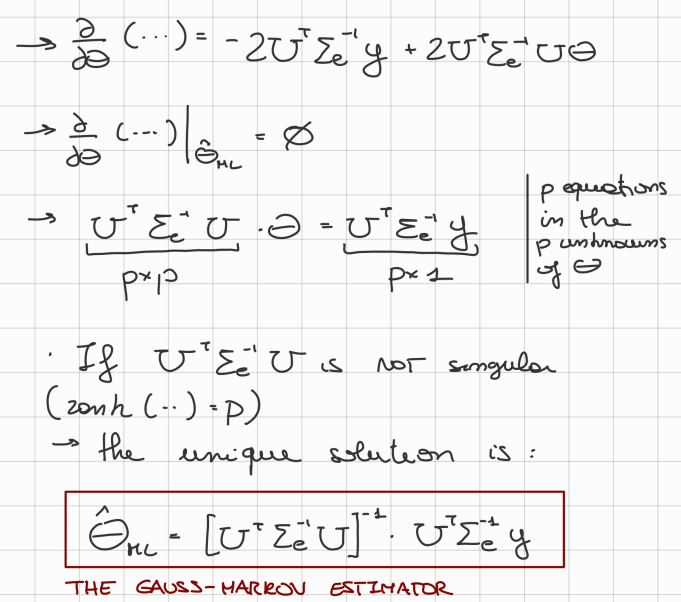 → ∂/∂Θ (...) = -2Uᵀ Σₑ⁻¹ y + 2Uᵀ Σₑ⁻¹ UΘ
→ ∂/∂Θ (...)|Θ̂_ML = ∅
→ Uᵀ Σₑ⁻¹ U · Θ = Uᵀ Σₑ⁻¹ y
p×p p×1
p equations
in the
p unknowns
of Θ
· If Uᵀ Σₑ⁻¹ U is NOT singular
(rank (..) = p)
→ the unique solution is :
Θ̂_ML = [Uᵀ Σₑ⁻¹ U]⁻¹ · Uᵀ Σₑ⁻¹ y
THE GAUSS-MARKOV ESTIMATOR